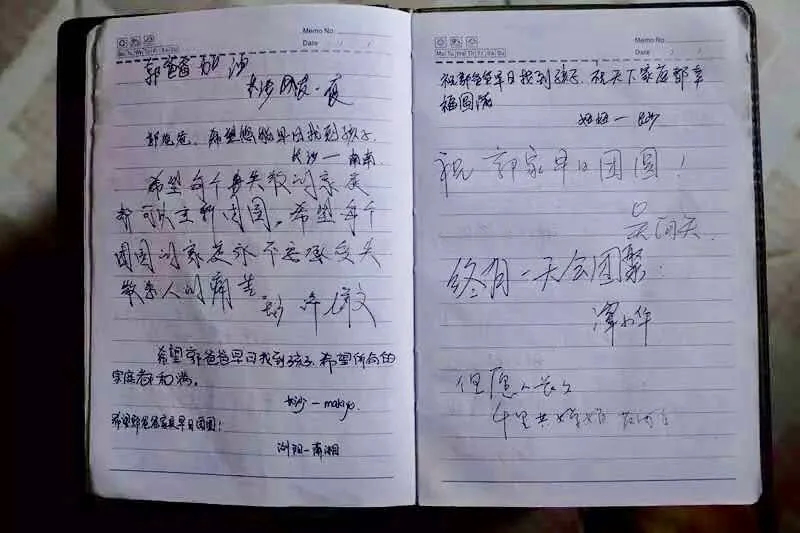 Memo No.
Date / /
Mo Tu We Th Fr Sa Su
郭爸爸加油
长沙网友一夜
郭爸爸,希望您能早日找到孩子
长沙一南南
希望每个丢失散的家庭
都可以重新团圆,希望每个
团圆的家庭永不要承受失
散亲人的痛苦。
希望郭爸爸早日找到孩子,希望所有的
家庭都和满。
长沙一makiyo.
希望郭爸爸家庭早日团圆!
浏阳一南湘
Memo No.
Date / /
Mo Tu We Th Fr Sa Su
祝郭爸爸早日找到孩子,祝天下家庭都幸
福圆满
祝郭家早日团圆!
终有一天会团聚.
但愿人长久
千里共婵娟